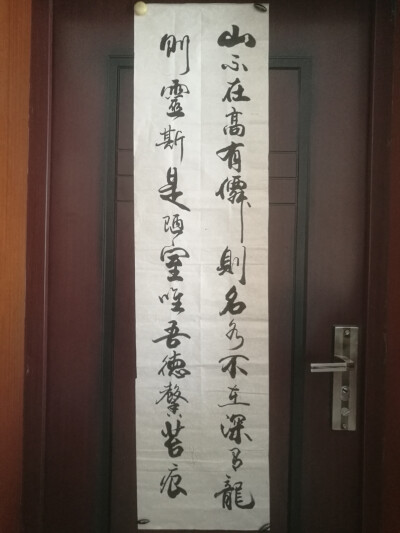 山不在高有僊則名水不在深有龍
則靈斯是陋室唯吾德馨苔痕